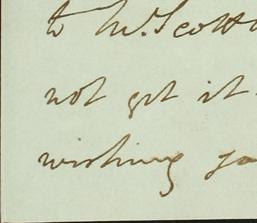 to Mr. Scott
not get it
wishing yo